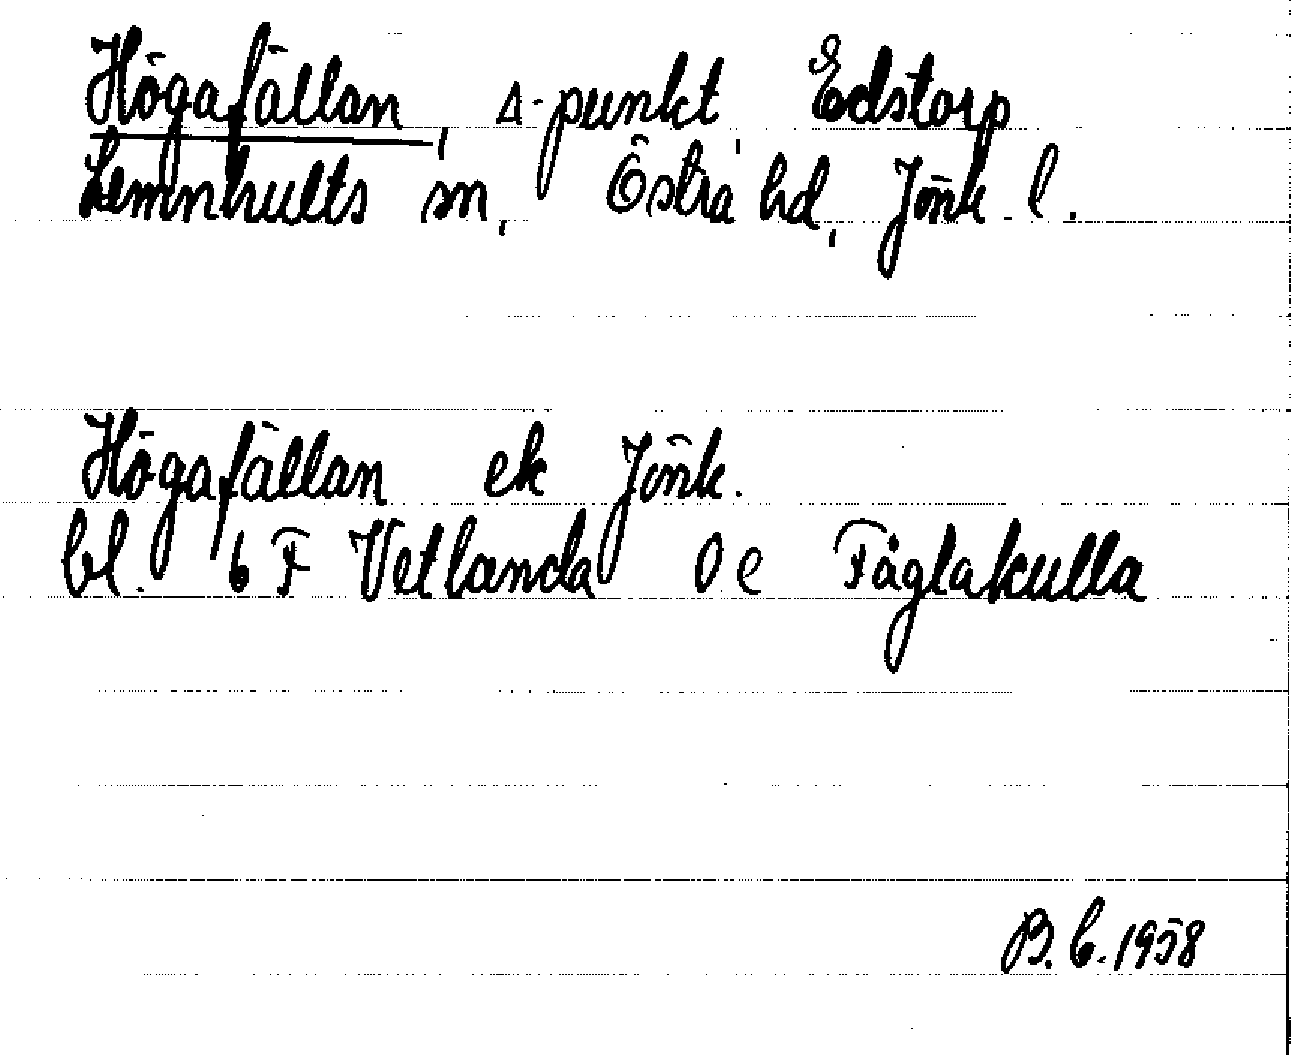 Högafällan, Δ-punkt, Edstorp
Lemnhults sn, Östra hd, Jönk. l.
Högafällan ek Jönk.
bl. 6 F Vetlanda 0 e Fåglakulla
B. C. 1958